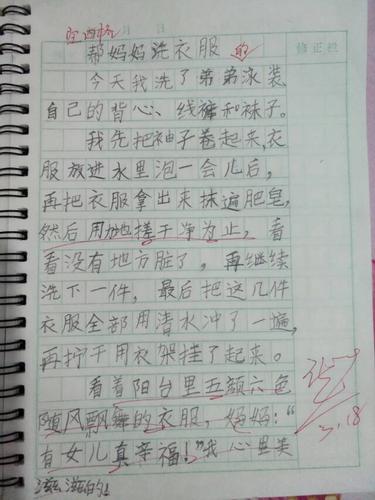 空四格 月 日
帮妈妈洗衣服 的 修正栏
今天我洗了弟弟泳装
自己的背心、线裤和袜子。
我先把袖子卷起来,衣
服放进水里泡一会儿后,
再把衣服拿出来抹遍肥皂,
然后用力搓干净为止,看
看没有地方脏了,再继续
洗下一件,最后把这几件
衣服全部用清水冲了一遍,
再拧干用衣架挂了起来。
看着阳台里五颜六色
随风飘舞的衣服,妈妈:“
有女儿真幸福!”我心里美
滋滋的!
3.18